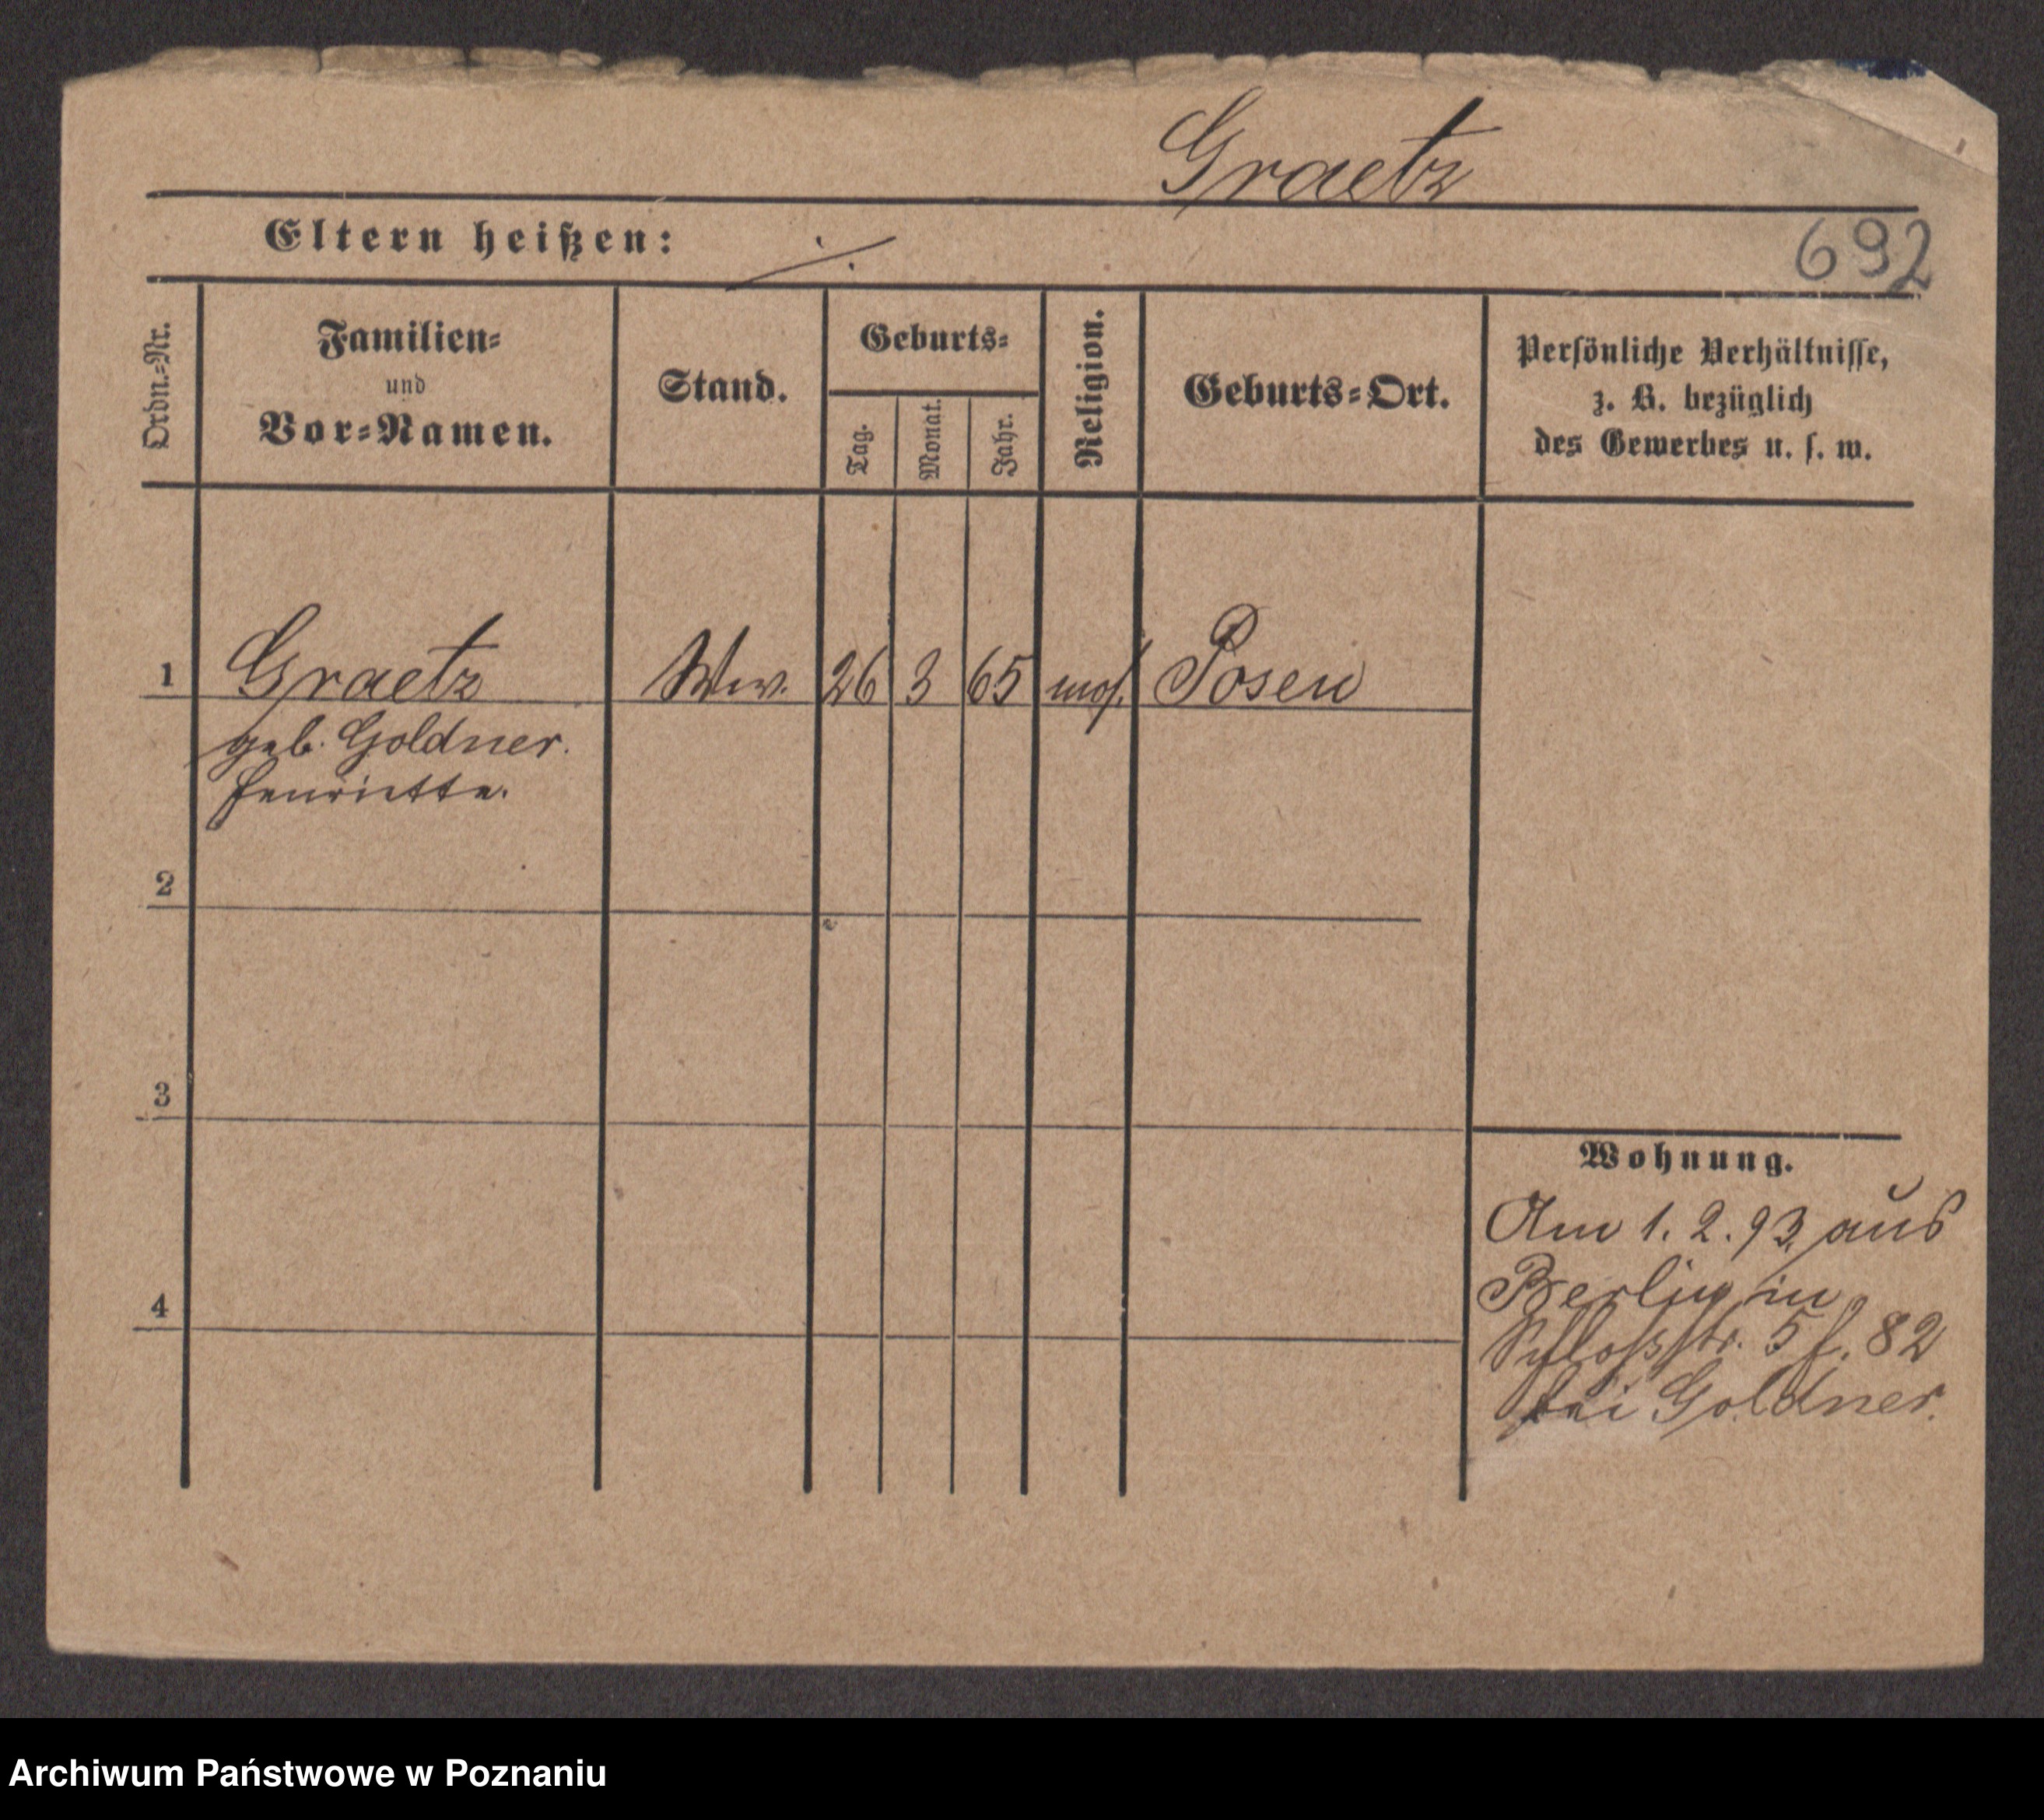 Graetz
Eltern heißen: ./.
692
Ordn.-Nr.
Familien-
und
Vor-Namen.
Stand.
Geburts-
Tag.
Monat.
Jahr.
Religion.
Geburts-Ort.
Persönliche Verhältnisse,
z. B. bezüglich
des Gewerbes u. s. w.
1 Graetz Ww. 26 3 65 mos. Posen
geb. Goldner.
Henriette.
2
3
4
Wohnung.
Am 1. 2. 93. aus
Berlin in
Schloßstr. 5 f. 82
bei Goldner.
Archiwum Państwowe w Poznaniu